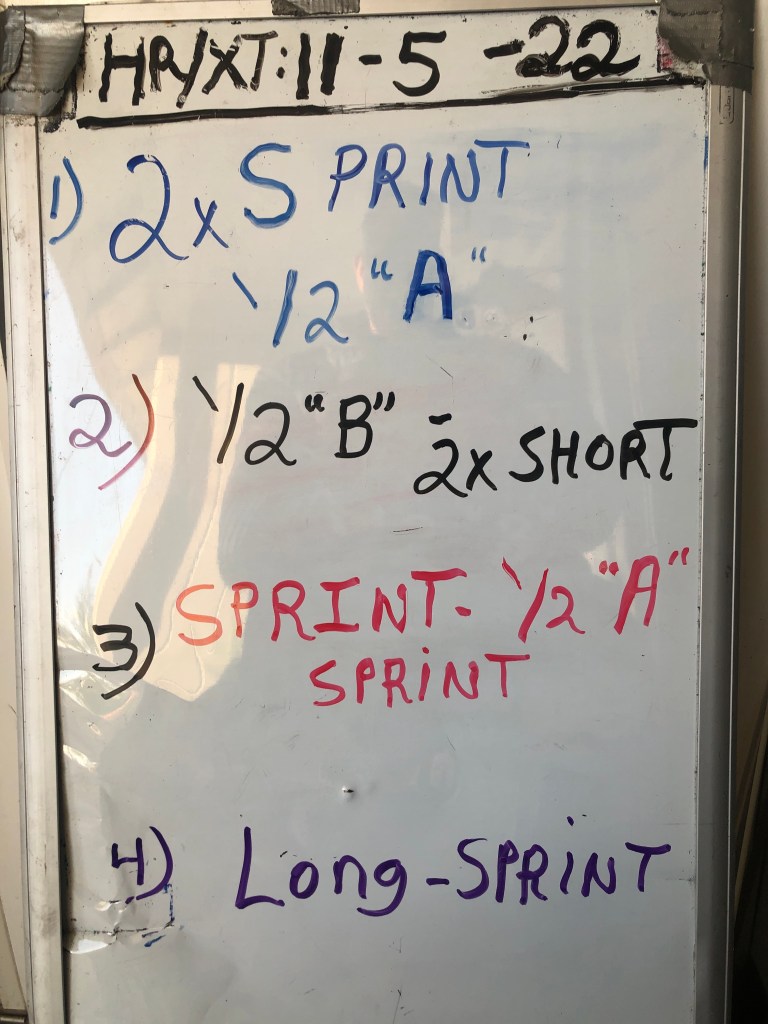 HR/XT: 11-5-22
1) 2x SPRINT
1/2 "A"
2) 1/2 "B" - 2x SHORT
3) SPRINT - 1/2 "A"
SPRINT
4) Long-SPRINT